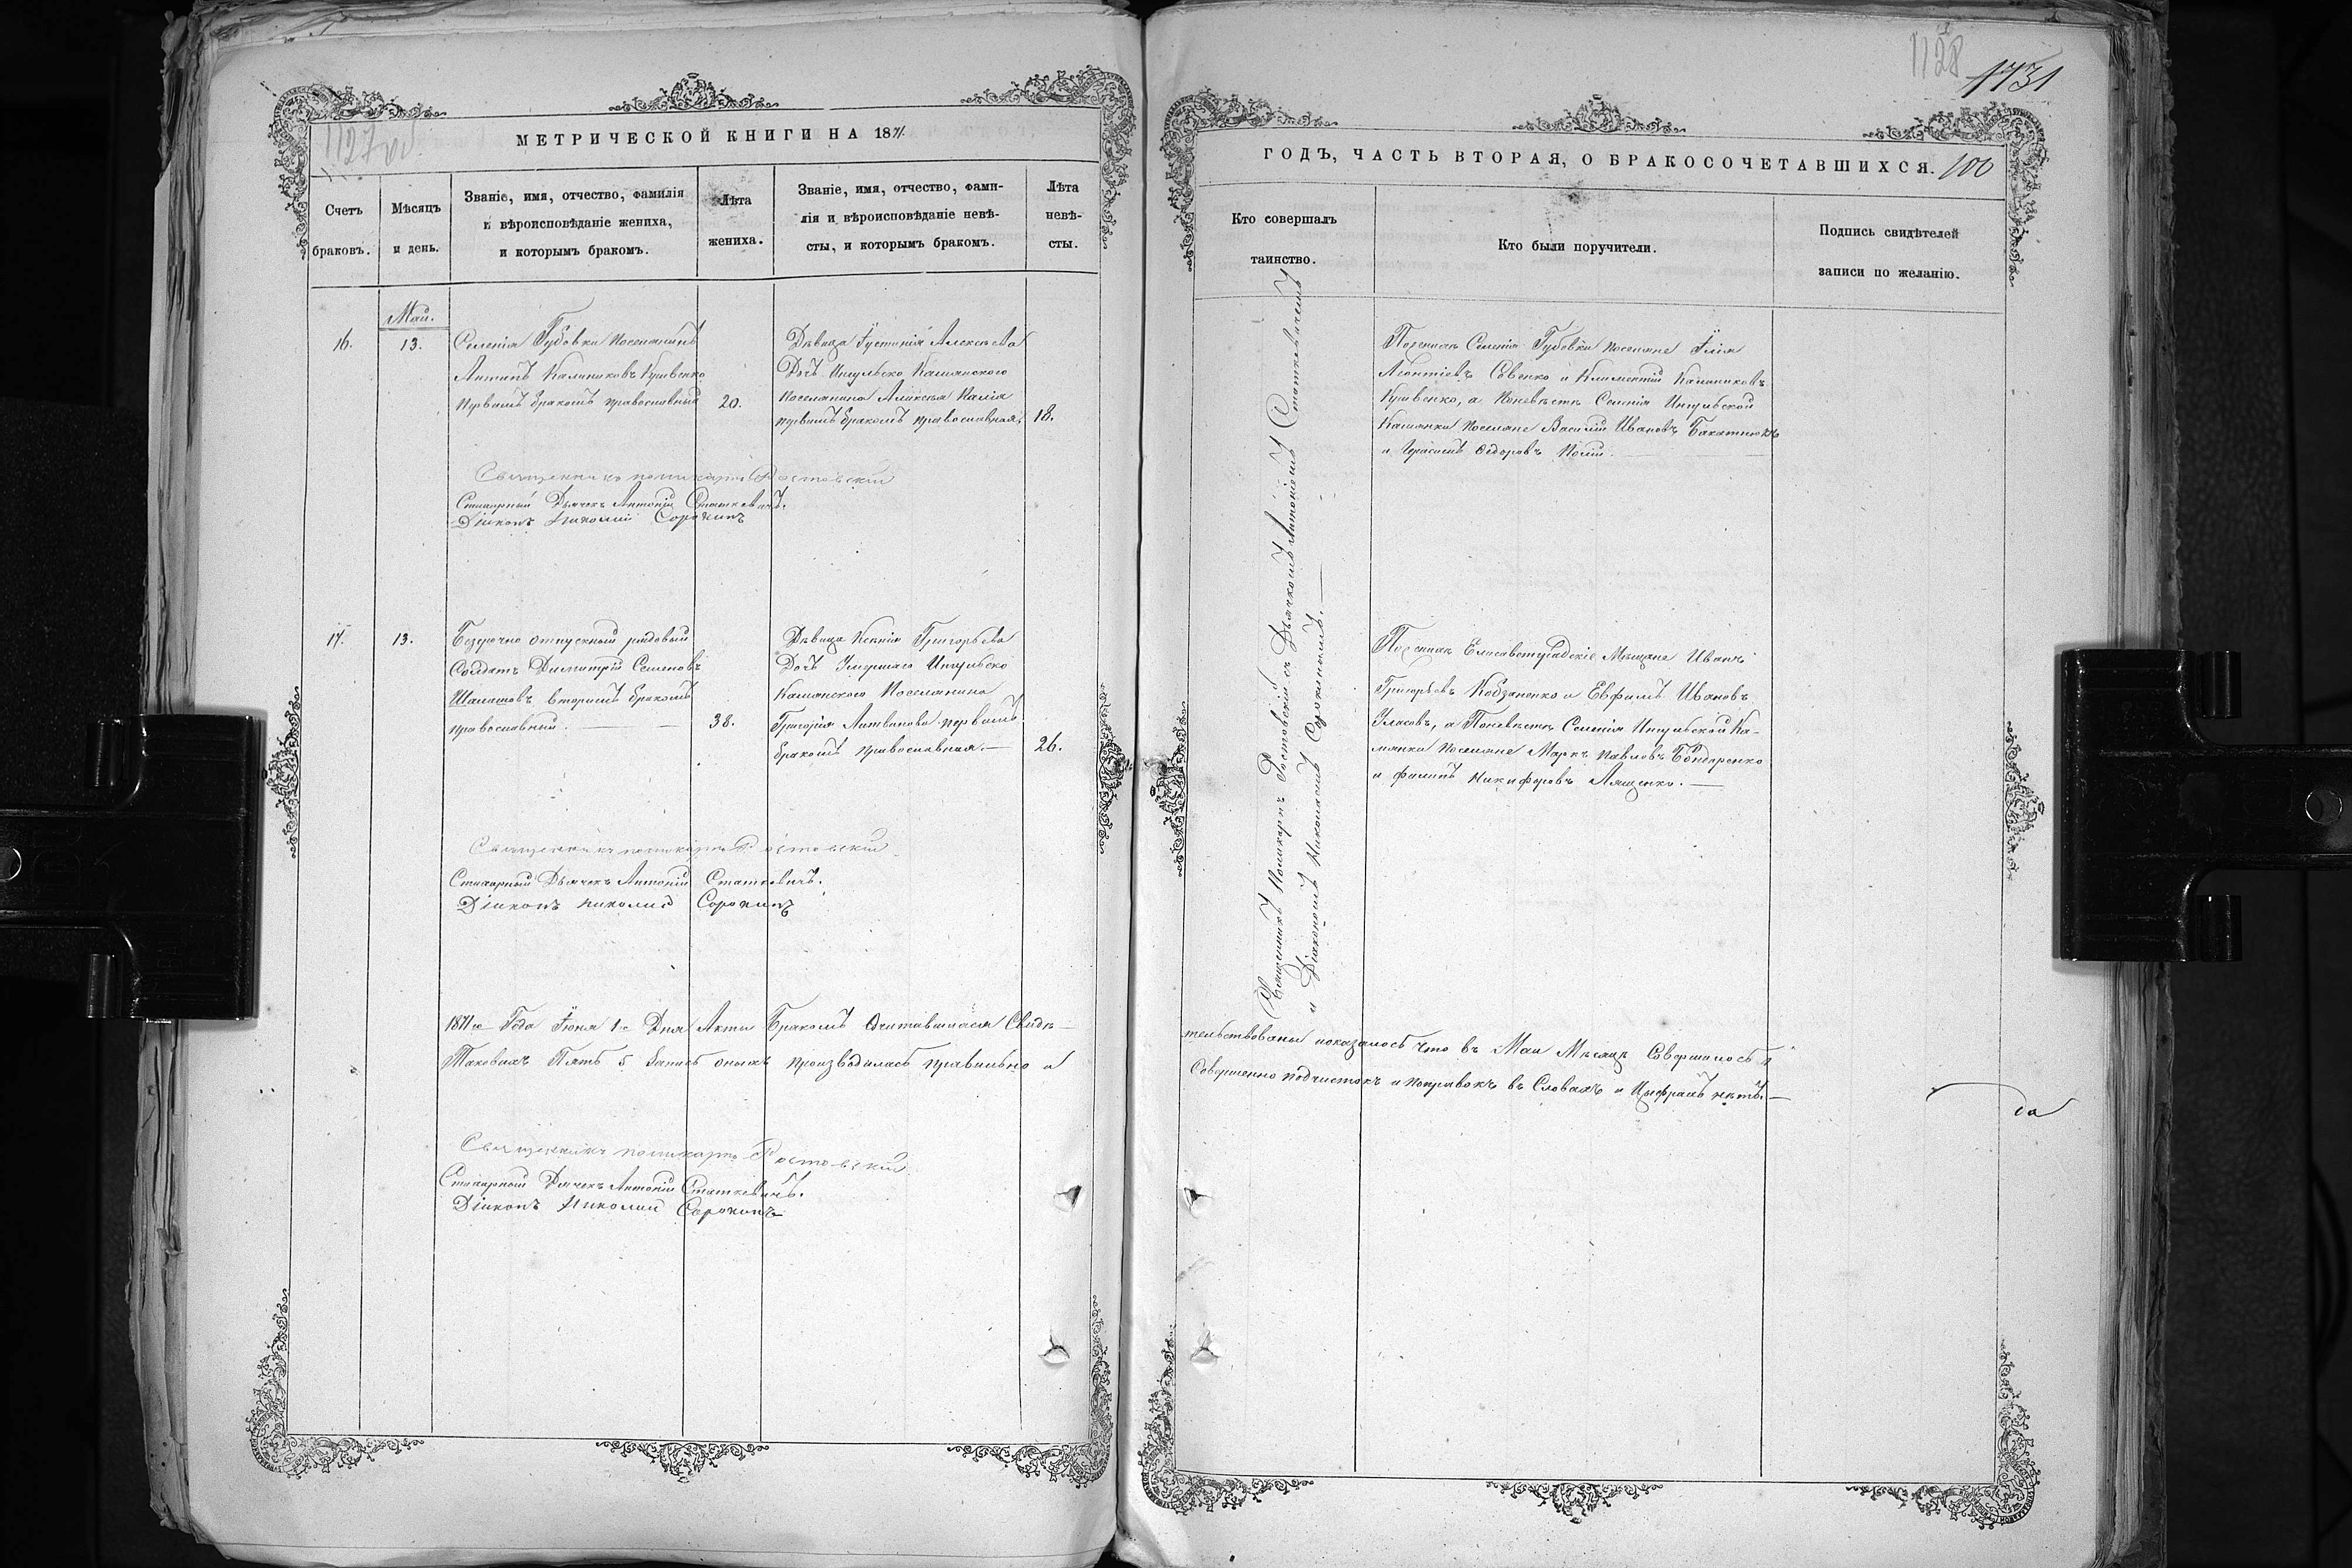 1127 об
МЕТРИЧЕСКОЙ КНИГИ НА 1871
Счетъ браковъ.
Мѣсяцъ и день.
Званіе, имя, отчество, фамилія
и вѣроисповѣданіе жениха,
и которымъ бракомъ.
Лѣта
жениха.
Званіе, имя, отчество, фами-
лія и вѣроисповѣданіе невѣ-
сты, и которымъ бракомъ.
Лѣта
невѣ-
сты.
Май.
16.
13.
Селенія Губовки Поселянинъ
Антипъ Калиниковъ Кушвенко
первымъ бракомъ православный
20.
Дѣвица Іустинія Алексѣева
Дочь Ингульско Каменского
поселянина Алексѣя Калія
первымъ бракомъ православная.
18.
Священникъ Поликарпъ Ростовскій
Стихарный Дьячекъ Антоній Статкевичъ.
Діаконъ Николай Сорокинъ
17.
13.
Безсрочно отпускный рядовый
Солдатъ Димитрій Семеновъ
Шалашовъ вторымъ бракомъ
православный.
38.
Дѣвица Ксенія Григорьева
Дочь Умершаго Ингульско
Каменского Поселянина
Григорія Литвинова первымъ
бракомъ православная.
26.
Священникъ Поликарпъ Ростовскій
Стихарный Дьячекъ Антоній Статкевичъ.
Діаконъ Николай Сорокинъ
1871го Года Іюня 1го Дня Акты Бракомъ Сочитавшихся Свидѣ-
Таковыхъ Пять 5 Запись оныхъ производилась правильно и
Священникъ Поликарпъ Ростовскій
Стихарный Дьячекъ Антоній Статкевичъ.
Діаконъ Николай Сорокинъ
1128
1731
ГОДЪ, ЧАСТЬ ВТОРАЯ, О БРАКОСОЧЕТАВШИХСЯ.
100
Кто совершалъ
таинство.
Кто были поручители.
Подпись свидѣтелей
записи по желанію.
Священникъ Поликарпъ Ростовскій съ Дьячкомъ Антоніемъ Статкевичемъ
и Діакономъ Николаемъ Сорокинымъ.
По женихѣ Селенія Губовки поселяне Илія
Леонтіевъ Совенко и Климентій Калиниковъ
Кушвенко, а по невѣстѣ Селенія Ингульской
Каменки поселяне Василій Ивановъ
и Герасимъ Ѳедоровъ
По женихѣ Елисаветградскіе Мѣщане Иванъ
Григорьевъ Кобзаненко и Евфимъ Ивановъ
Уласовъ, а По невѣстѣ Селенія Ингульской Ка-
менки поселяне Маркъ Павловъ Бондаренко
и Филипъ Никифоровъ Лященко.
тельствованы показалось что въ Маи Мѣсяцѣ Совершилось
Совершенно подчистокъ и поправокъ въ Словахъ и Цыфрахъ нѣтъ.